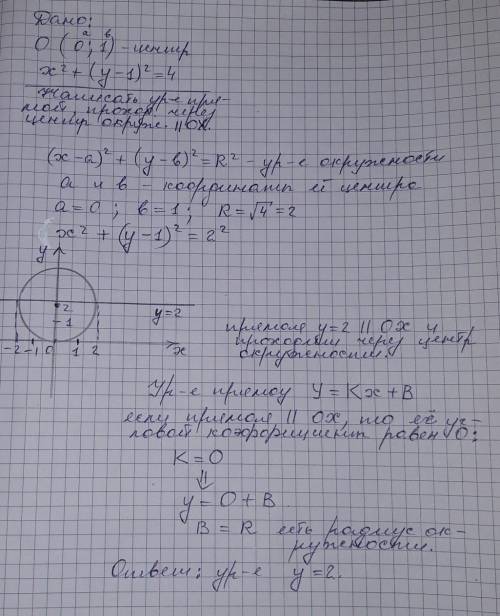 Дано:
а в
О (0; 1) - центр
x² + (y-1)² = 4
Написать ур-е пря-
мой, проход. через
центр окруж. || OX.
(x-a)² + (y-в)² = R² - ур-е окружности
а и в - координаты её центра
a = 0 ; в = 1 ; R = √4 = 2
x² + (y-1)² = 2²
y
2
1
y=2
-2 -1 0 1 2 x
прямая y=2 || OX и
проходит через центр
окружности.
Ур-е прямой y = Kx + B
если прямая || OX, то её уг-
ловой коэффициент равен 0:
K = 0
⇓
y = 0 + B
B = R есть радиус ок-
ружности.
Ответ: ур-е y = 2.